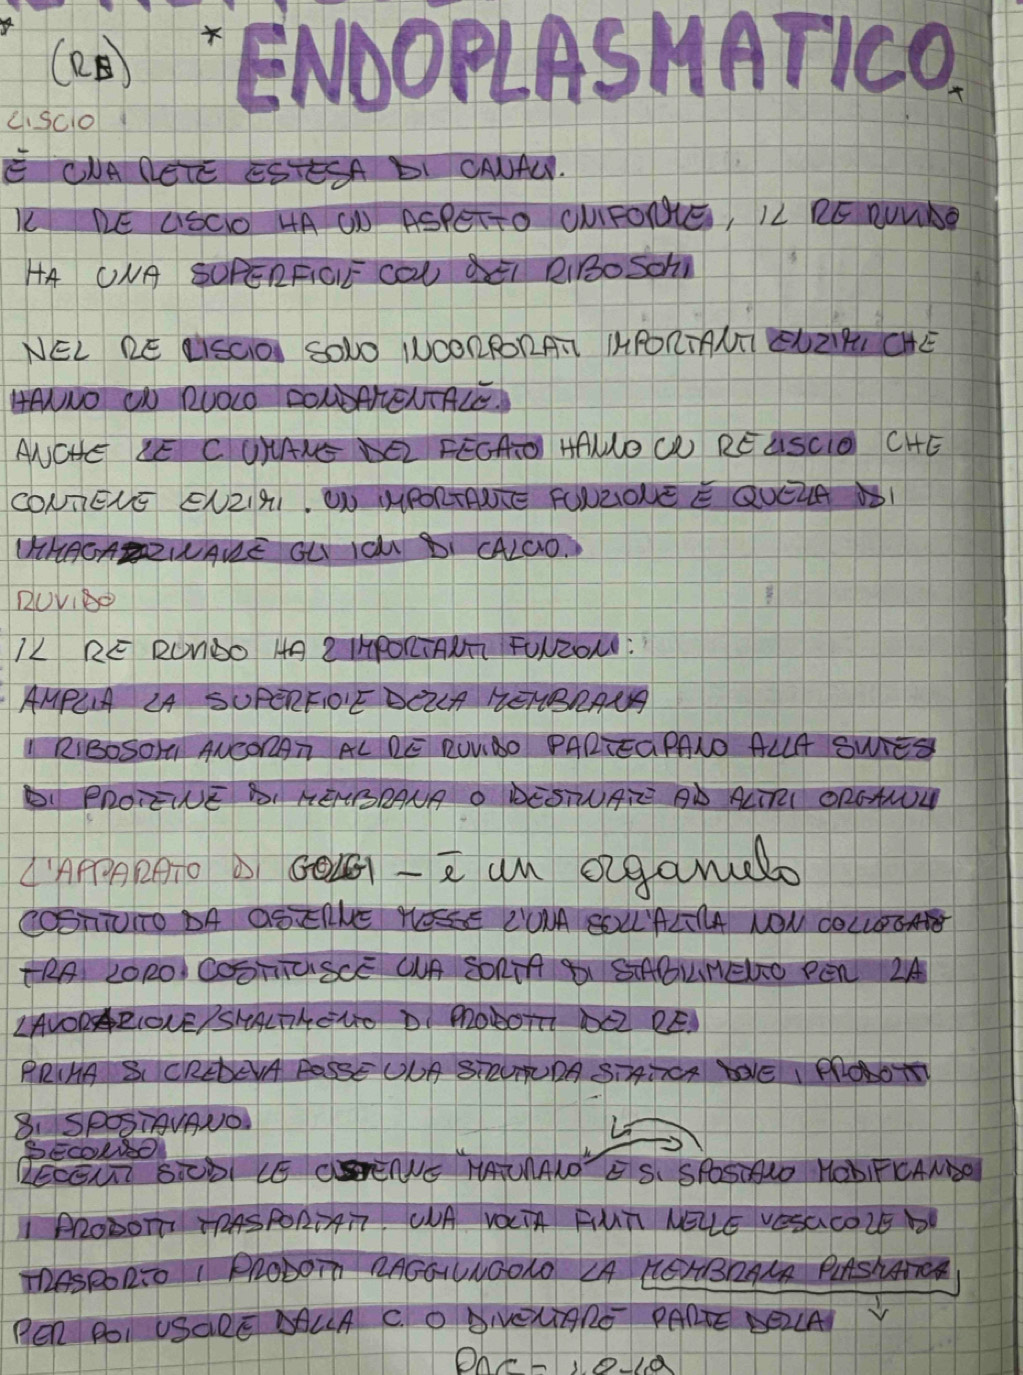 (RE) * ENDOPLASMATICO *
LISCIO
È UNA RETE ESTESA DI CANALI.
IL RE LISCIO HA UN ASPETTO UNIFORME, IL RE RUVIDO
HA UNA SUPERFICIE CON DEI RIBOSOMI
NEL RE LISCIO SONO INCORPORATI IMPORTANTI ENZIMI CHE
HANNO UN RUOLO FONDAMENTALE.
ANCHE LE C UMANE DEL FEGATO HANNO UN RE LISCIO CHE
CONTIENE ENZIMI. UN IMPORTANTE FUNZIONE È QUELLA DI
IMMAGAZZINARE GLI IONI DI CALCIO.
RUVIDO
IL RE RUVIDO HA 2 IMPORTANTI FUNZIONI:
AMPLIA LA SUPERFICIE DELLA MEMBRANA
I RIBOSOMI ANCORATI AL RE RUVIDO PARTECIPANO ALLA SINTESI
DI PROTEINE DI MEMBRANA O DESTINATE AD ALTRI ORGANULI
L'APPARATO DI GOLGI - è un organulo
COSTITUITO DA CISTERNE MESSE L'UNA SULL'ALTRA NON COLLEGATE
TRA LORO COSTITUISCE UNA SORTA DI STABILIMENTO PER LA
LAVORAZIONE/SMALTIMENTO DI PRODOTTI DEL RE.
PRIMA SI CREDEVA FOSSE UNA STRUTTURA STATICA DOVE I PRODOTTI
SI SPOSTAVANO.
SECONDO
RECENTI STUDI LE CISTERNE "MATURANO" E SI SPOSTANO MODIFICANDO
I PRODOTTI TRASPORTATI. UNA VOLTA FINITI NELLE VESCICOLE DI
TRASPORTO I PRODOTTI RAGGIUNGONO LA MEMBRANA PLASMATICA
PER POI USCIRE DALLA C. O DIVENTARE PARTE DELLA